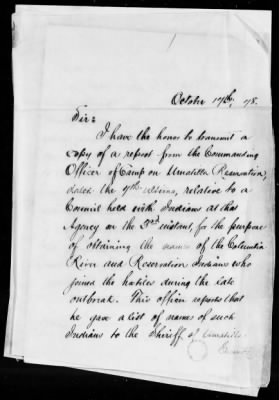 October 17th, 78.
Sir:
I have the honor to transmit a
copy of a report from the Commanding
Officer of Camp on Umatilla (Reservation),
dated the 7th ultimo, relative to a
Council held with Indians at that
Agency on the 3rd instant, for the purpose
of obtaining the names of the Columbia
River and Reservation Indians who
joined the hostiles during the late
outbreak. This officer reports that
he gave a list of names of such
Indians to the Sheriff of Umatilla